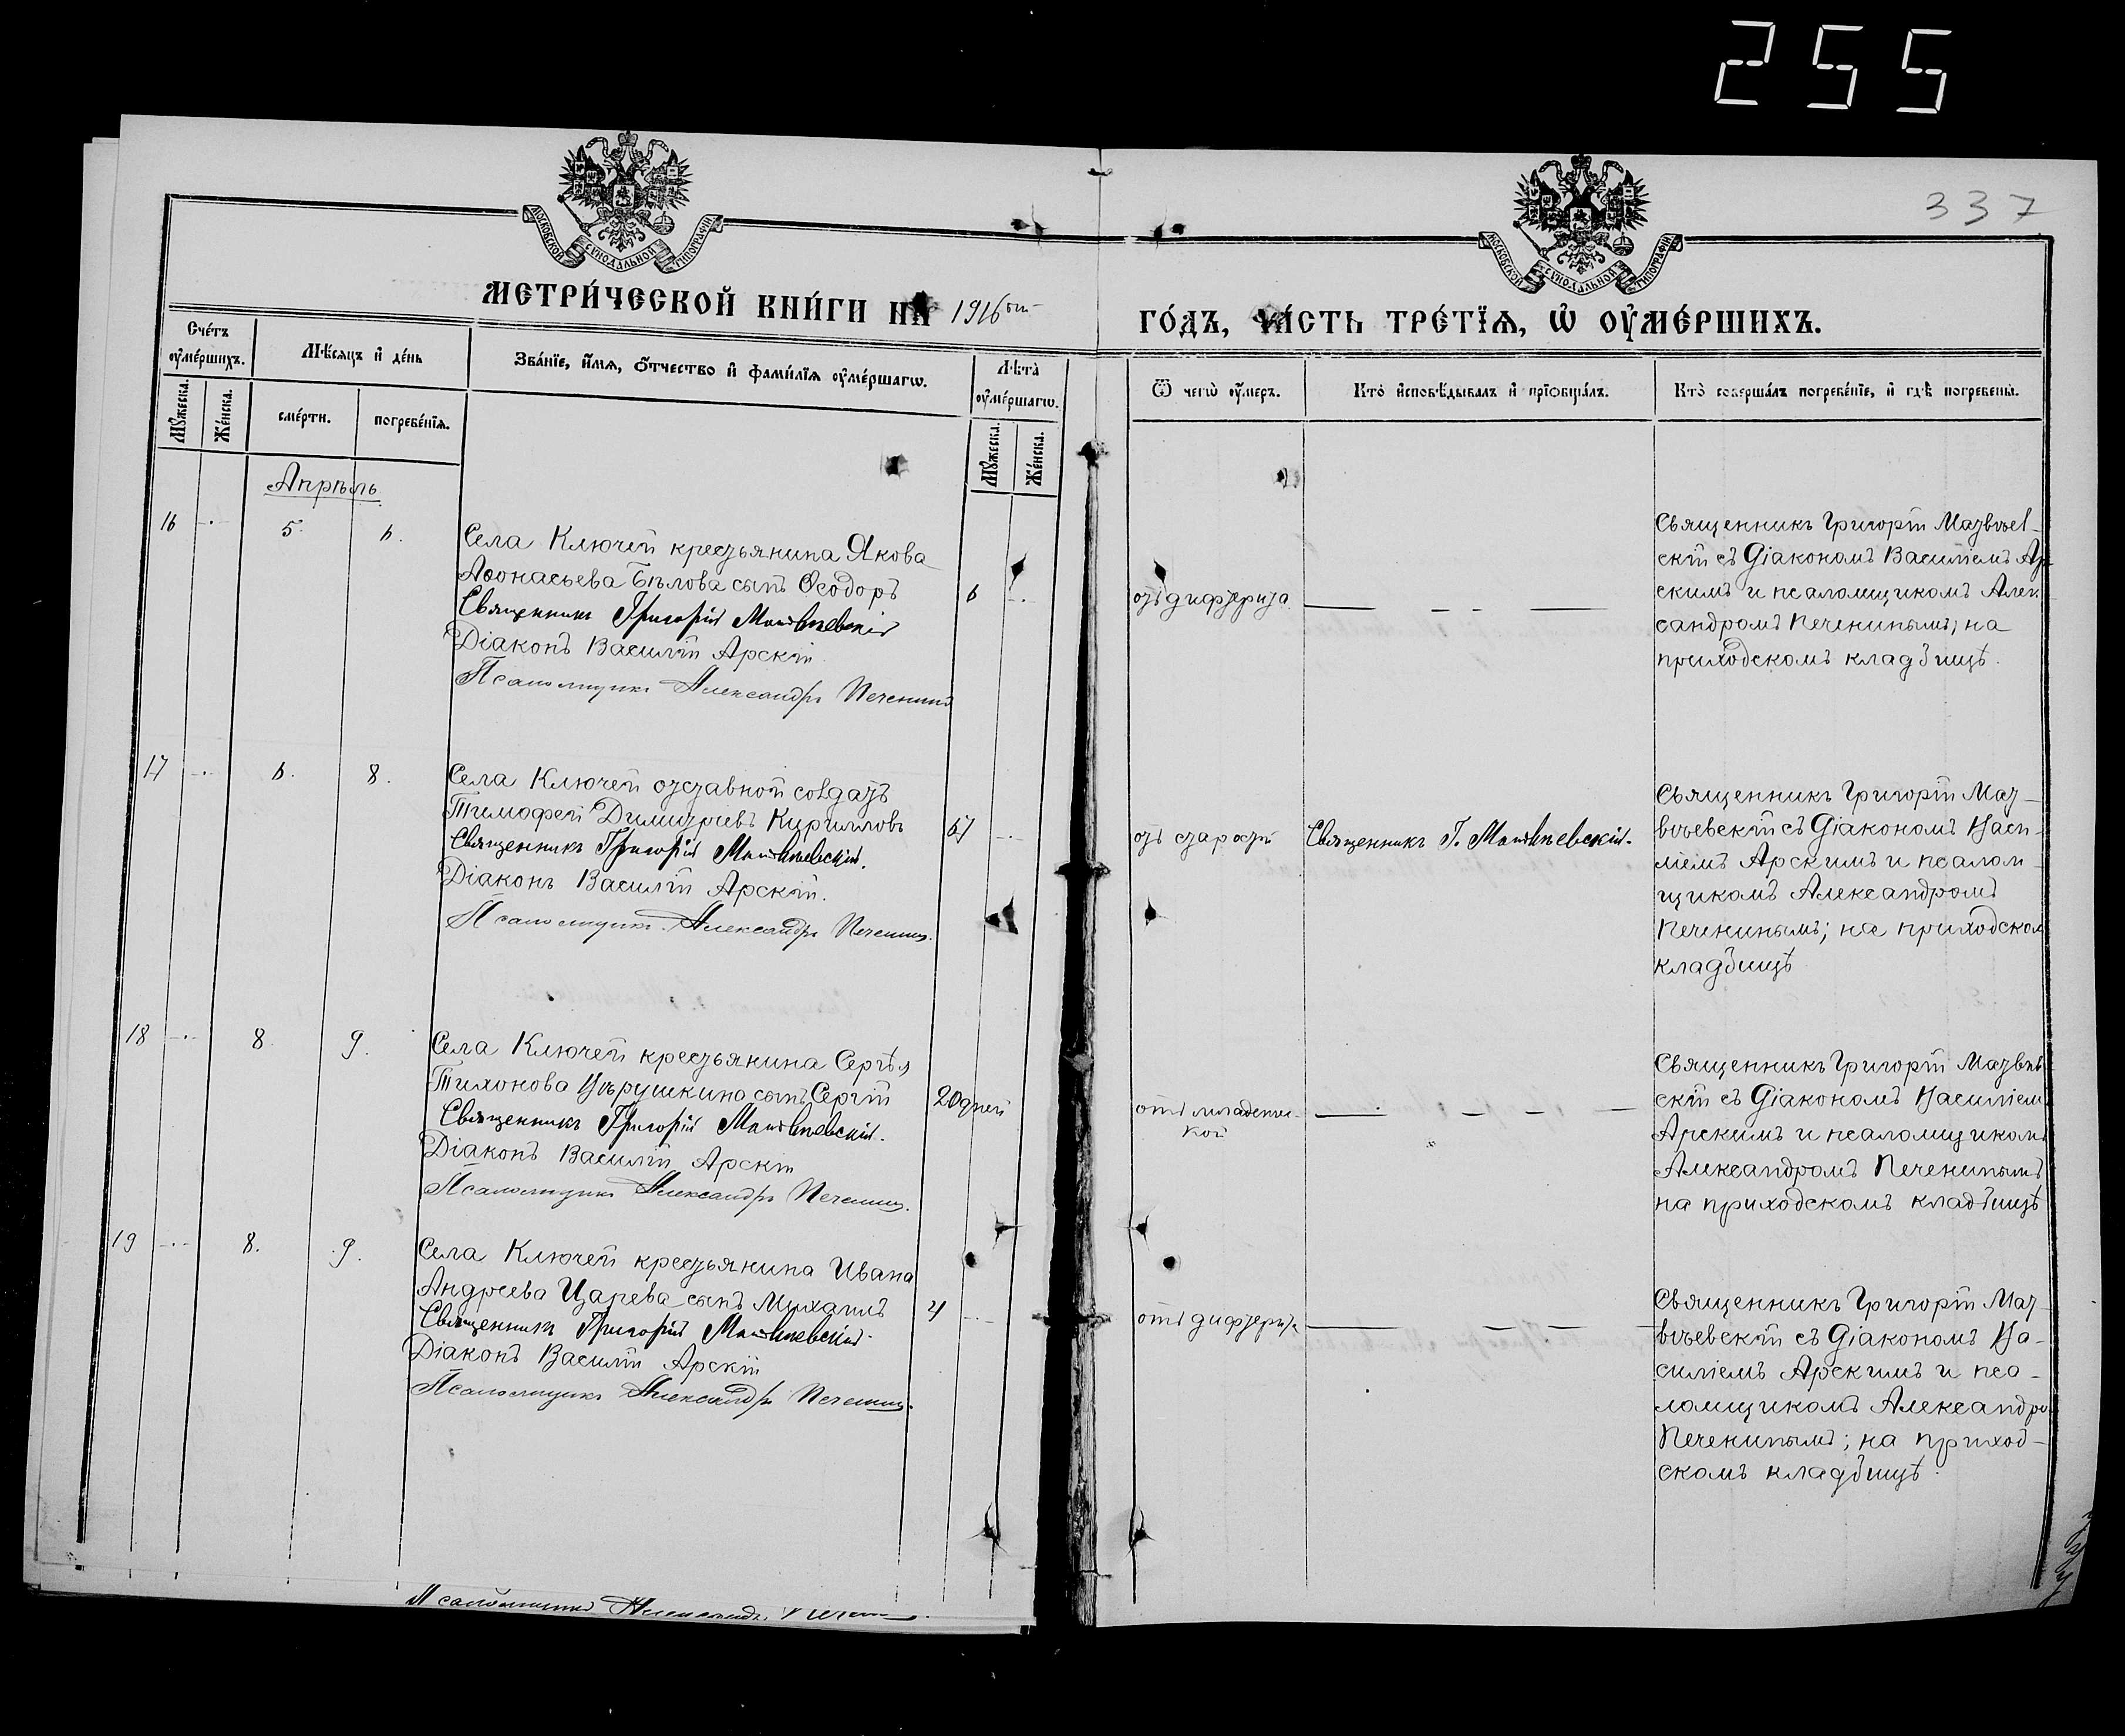 255
337
МОСКОВСКОЙ СѴНОДАЛЬНОЙ ТИПОГРАФІИ
МОСКОВСКОЙ СѴНОДАЛЬНОЙ ТИПОГРАФІИ
МЕТРИ́ЧЕСКОЙ КНИ́ГИ НА 1916ый
ГО́ДЪ, ЧА́СТЬ ТРЕ́ТЇѦ, Ѡ҆ ОУ҆МЕ́РШИХЪ.
Сче́тъ оу҆ме́ршихъ.
Мꙋ́жеска.
Же́нска.
Мѣ́сѧцъ и҆ де́нь
сме́рти.
погребе́нїѧ.
Зва́нїе, и҆́мѧ, о҆́тчество и҆ фами́лїѧ оу҆ме́ршагѡ.
Лѣ́та̀ оу҆ме́ршагѡ.
Мꙋ́жеска.
Же́нска.
Ѿ чегѡ̀ оу҆́меръ.
Кто̀ и҆сповѣ́дывалъ и҆ прїѻбща́лъ.
Кто̀ соверша́лъ погребе́нїе, и҆ гдѣ̀ погребены̀.
Апрѣль
16 -.- 5. 6.
Села Ключей крестьянина Якова
Аѳонасьева Бѣлова сынъ Ѳеодоръ
Священникъ Григорій Матвѣевскій
Діаконъ Василій Арскій
Псаломщикъ Александръ Печенинъ
6 -.-
отъ дифтерита
Священникъ Григорій Матвѣев-
скій съ Діакономъ Василіемъ Ар-
скимъ и псаломщикомъ Алек
сандромъ Печенинымъ; на
приходскомъ кладбищѣ.
17 -.- 6. 8.
Села Ключей отставной солдатъ
Тимофей Димитріевъ Кирилловъ
Священникъ Григорій Матвѣевскій.
Діаконъ Василій Арскій.
Псаломщикъ Александръ Печенинъ.
67 -.-
отъ старости
Священникъ Г. Матвѣевскій.
Священникъ Григорій Мат-
вѣевскій съ Діакономъ Васи-
ліемъ Арскимъ и псалом-
щикомъ Александромъ
Печенинымъ; на приходском
кладбищѣ
18 -.- 8. 9.
Села Ключей крестьянина Сергѣя
Тихонова сынъ Сергій
Священникъ Григорій Матвѣевскій.
Діаконъ Василій Арскій
Псаломщикъ Александръ Печенинъ.
20 дней
отъ младенчес-
кой
Священникъ Григорій Матвѣев
скій съ Діакономъ Василіем
Арскимъ и псаломщикомъ
Александромъ Печенинымъ
на приходскомъ кладбищѣ
19 -.- 8. 9.
Села Ключей крестьянина Ивана
Андреева Царева сынъ Михаилъ
Священникъ Григорій Матвѣевскій.
Діаконъ Василій Арскій
Псаломщикъ Александръ Печенинъ.
4 -.-
отъ дифтерита
Священникъ Григорій Мат-
вѣевскій съ Діакономъ Ва-
силіемъ Арскимъ и пса-
ломщикомъ Александро
Печенинымъ; на приход-
скомъ кладбищѣ.
Псаломщикъ Александръ Печенинъ